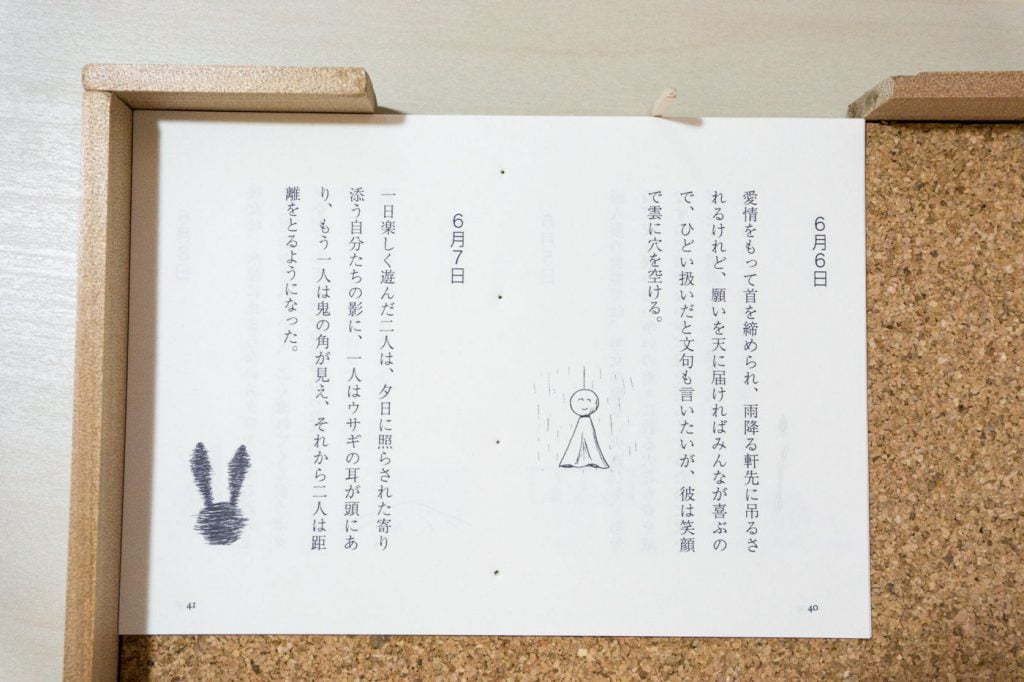 6月6日
愛情をもって首を締められ、雨降る軒先に吊るさ
れるけれど、願いを天に届ければみんなが喜ぶの
で、ひどい扱いだと文句も言いたいが、彼は笑顔
で雲に穴を空ける。
40
6月7日
一日楽しく遊んだ二人は、夕日に照らされた寄り
添う自分たちの影に、一人はウサギの耳が頭にあ
り、もう一人は鬼の角が見え、それから二人は距
離をとるようになった。
41